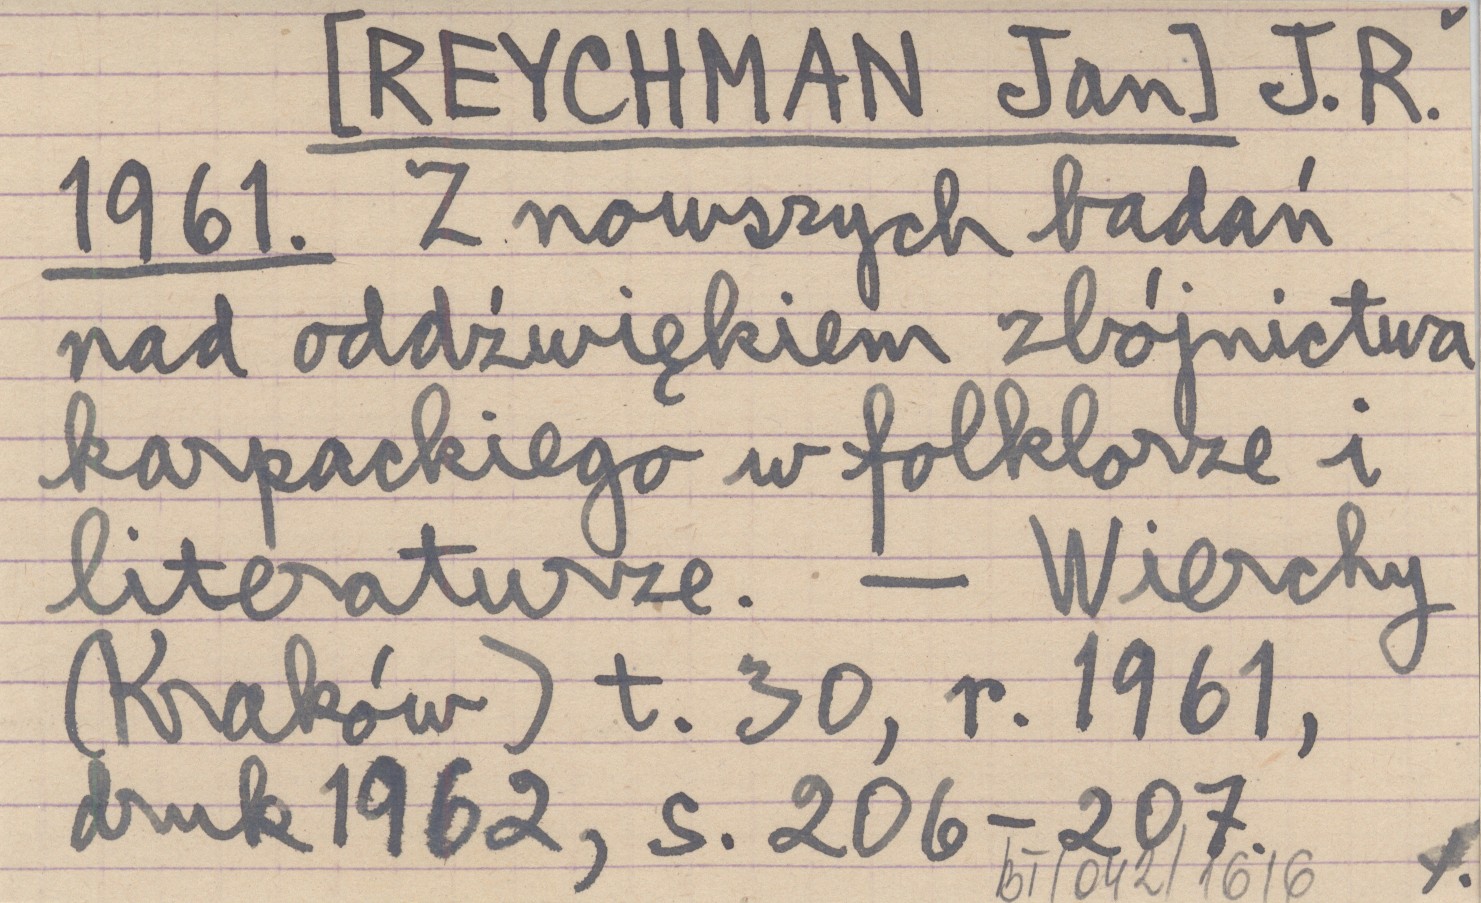 [REYCHMAN Jan] J.R.
1961. Z nowszych badań
nad oddźwiękiem zbójnictwa
karpackiego w folklorze i
literaturze. — Wierchy
(Kraków) t. 30, r. 1961,
druk 1962, s. 206-207.
bI/042/1616